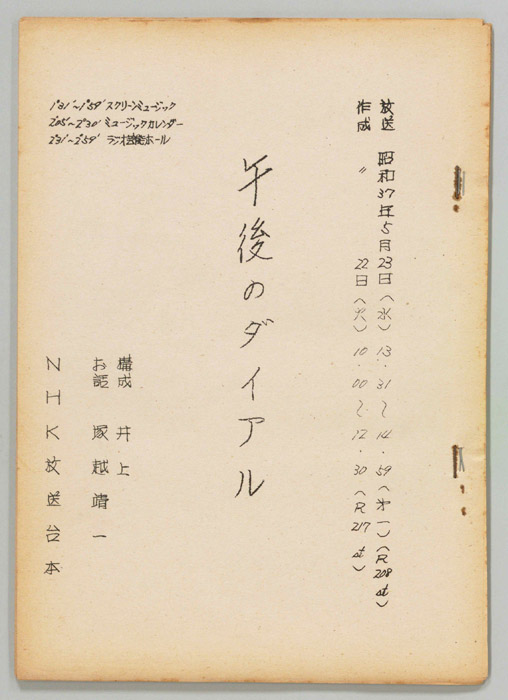 放送 昭和37年5月23日(水)13.31~14.59(第一)(R208st)
作成 〃 22日(火)10.00~12.30(R217st)
午後のダイアル
1°31′~1°59′ スクリーンミュージック
2°05′~2°30′ ミュージックカレンダー
2°31′~2°59′ ラジオ芸能ホール
構成 井上
お話 塚越靖一
NHK放送台本